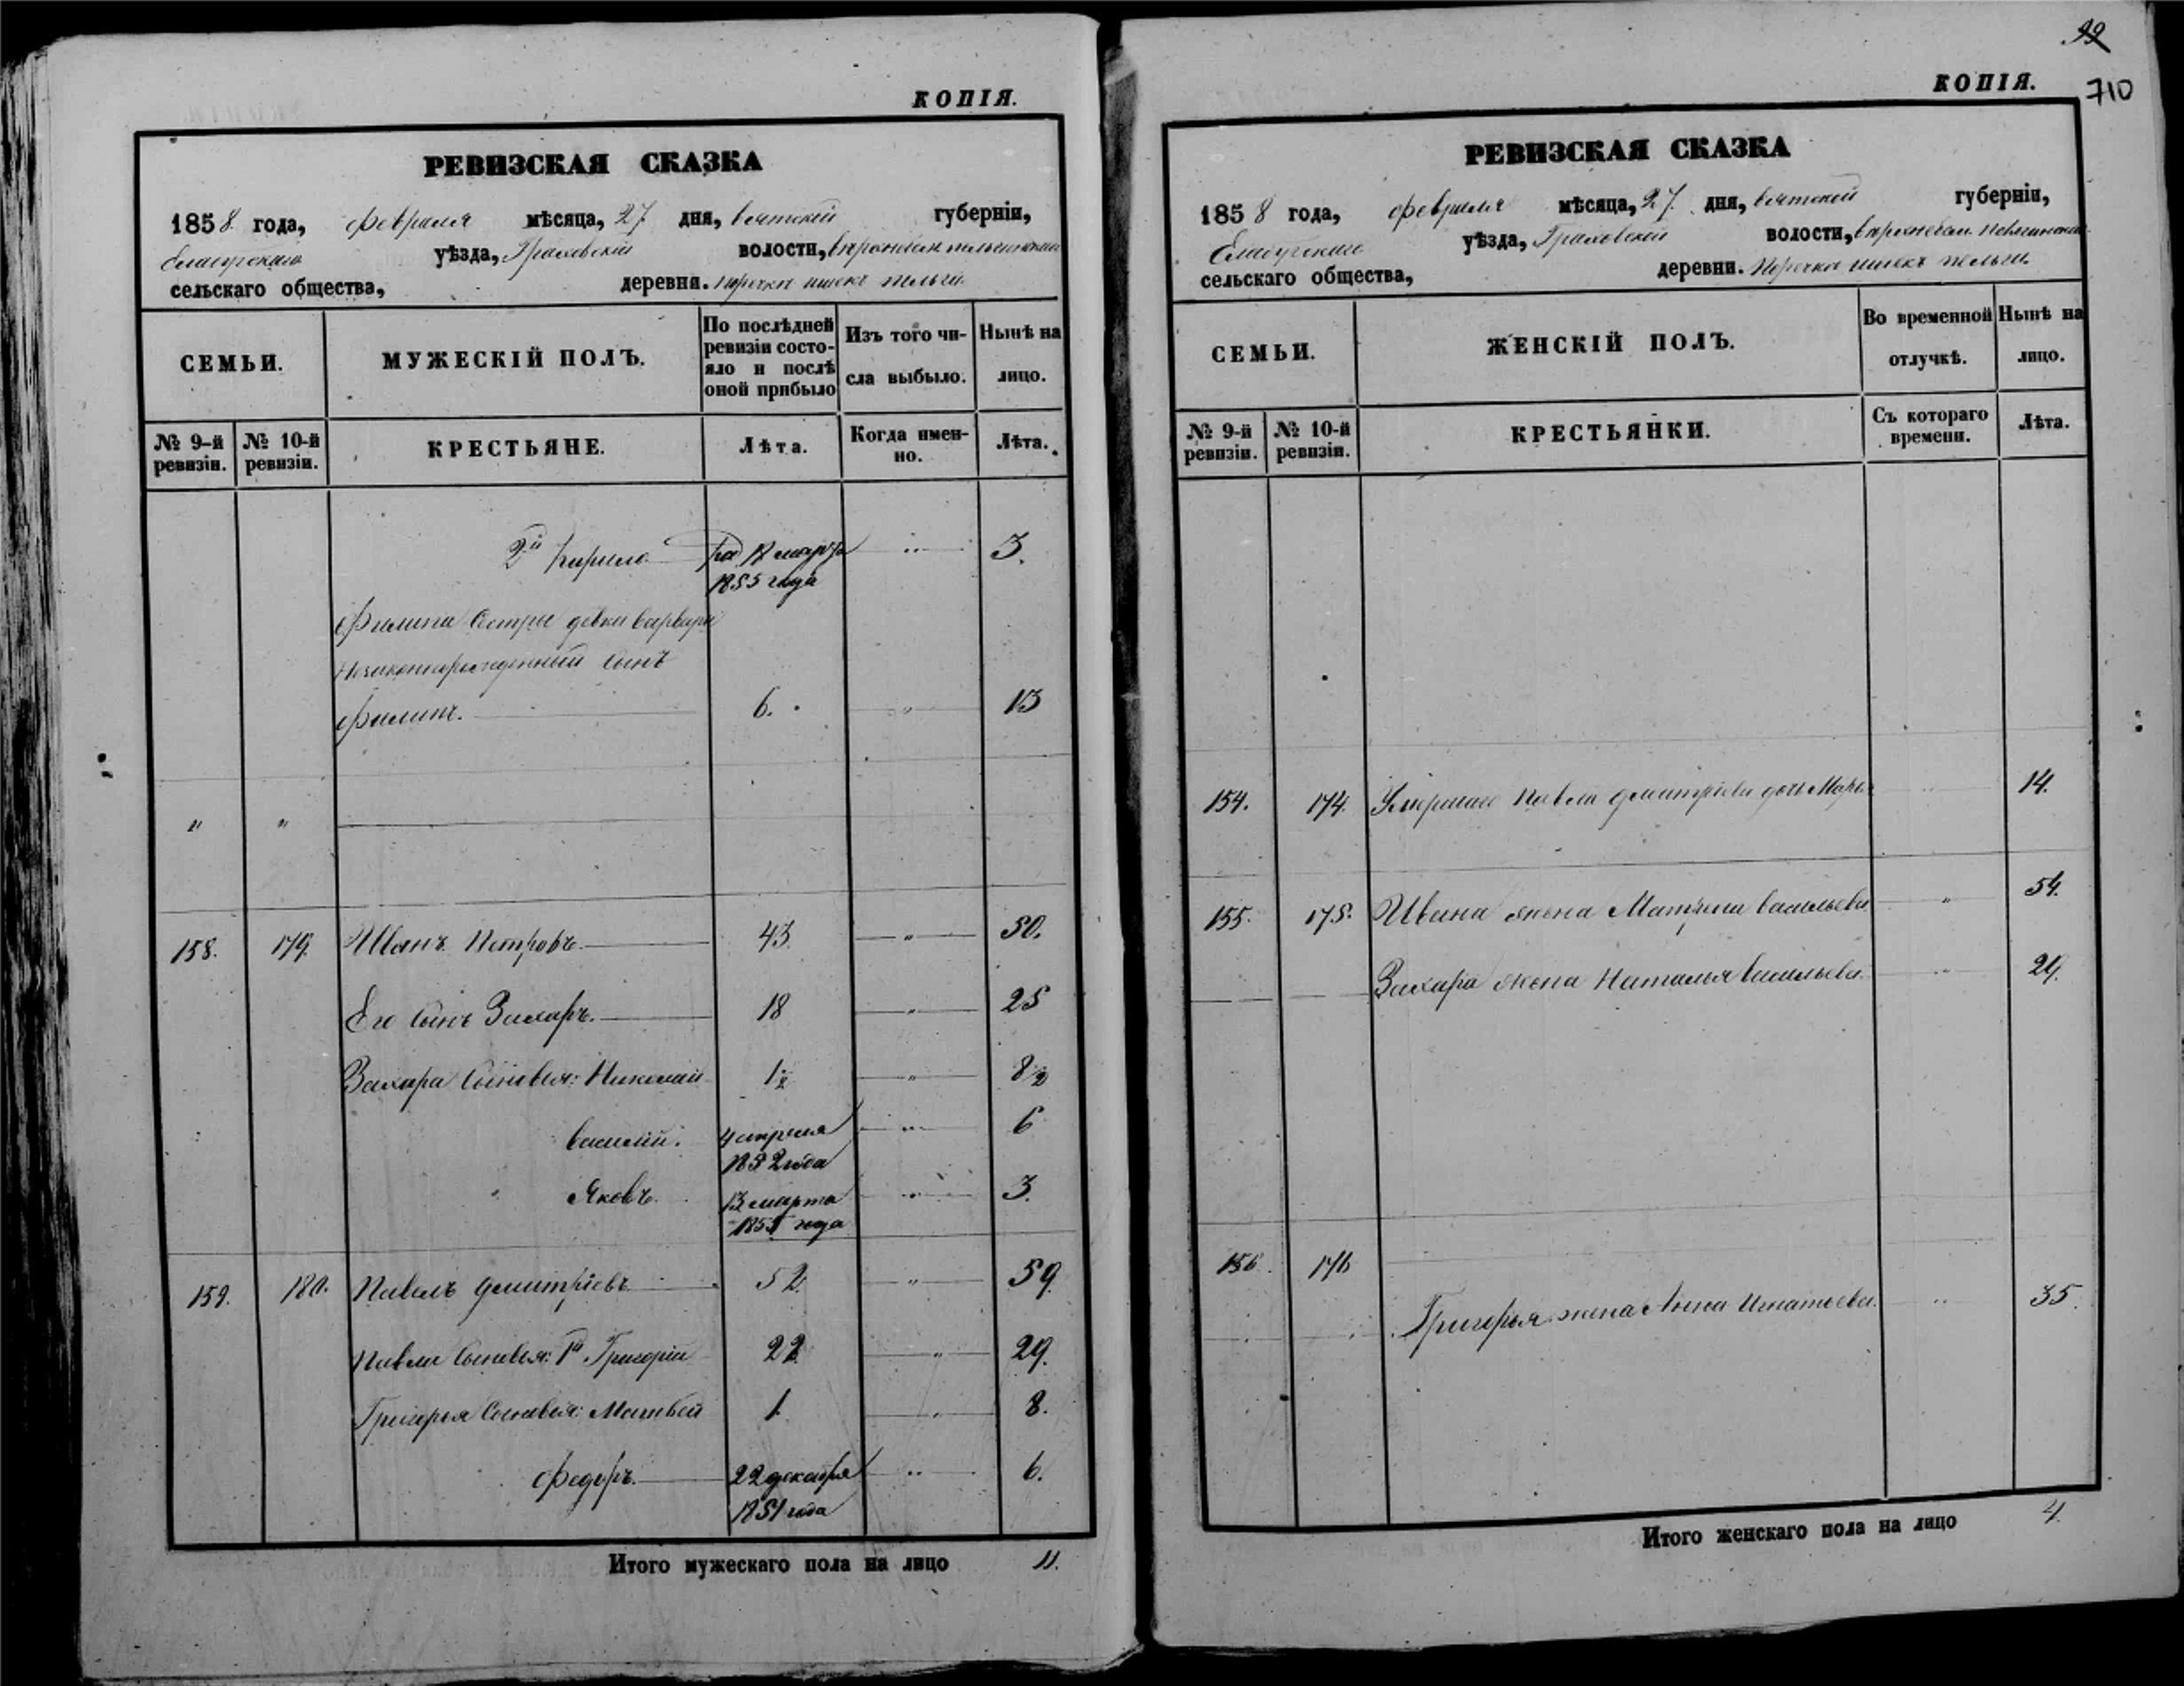 КОПІЯ.
РЕВИЗСКАЯ СКАЗКА
1858 года, февраля мѣсяца, 27 дня, вятской губерніи,
Елабугскаго уѣзда, Граховской волости,
сельскаго общества, деревни.
СЕМЬИ.
МУЖЕСКІЙ ПОЛЪ.
По послѣдней
ревизіи состо-
яло и послѣ
оной прибыло
Изъ того чи-
сла выбыло.
Нынѣ на
лицо.
№ 9-й
ревизіи.
№ 10-й
ревизіи.
КРЕСТЬЯНЕ.
Лѣта.
Когда имен-
но.
Лѣта.
2й Кирило род 12 марта „ 3.
1855 года
Филипа сестры девки варвары
Незаконнорожденный сынъ
Филипъ. 6. „ 13
„ „
158. 179. Иванъ Петровъ. 43. „ 50.
Его сынъ Захаръ. 18 „ 25
Захара сыновья: Николай 1/2 „ 8/2
василій. 4 апреля „ 6
1852 года
Яковъ. 13 марта „ 3.
1855 года
159. 180. Павелъ дмитріевъ 52 „ 59.
Павла сыновья: 1й Григорій 22 „ 29.
Григорья сыновья: Матвей 1. „ 8.
Федоръ. 22 декабря „ 6.
1851 года
Итого мужескаго пола на лицо 11.
99
710
КОПІЯ.
РЕВИЗСКАЯ СКАЗКА
1858 года, февраля мѣсяца, 27. дня, вятской губерніи,
Елабугскаго уѣзда, Граховской волости,
сельскаго общества, деревни.
СЕМЬИ.
ЖЕНСКІЙ ПОЛЪ.
Во временной
отлучкѣ.
Нынѣ на
лицо.
№ 9-й
ревизіи.
№ 10-й
ревизіи.
КРЕСТЬЯНКИ.
Съ котораго
времени.
Лѣта.
154. 174. Умершаго Павла дмитріева дочь Марья „ 14.
155. 175. Ивана жена Матрена васильева „ 54.
Захара жена Наталья васильева. „ 29.
156. 176
Григорья жена Анна Игнатьева. „ 35.
Итого женскаго пола на лицо 4.